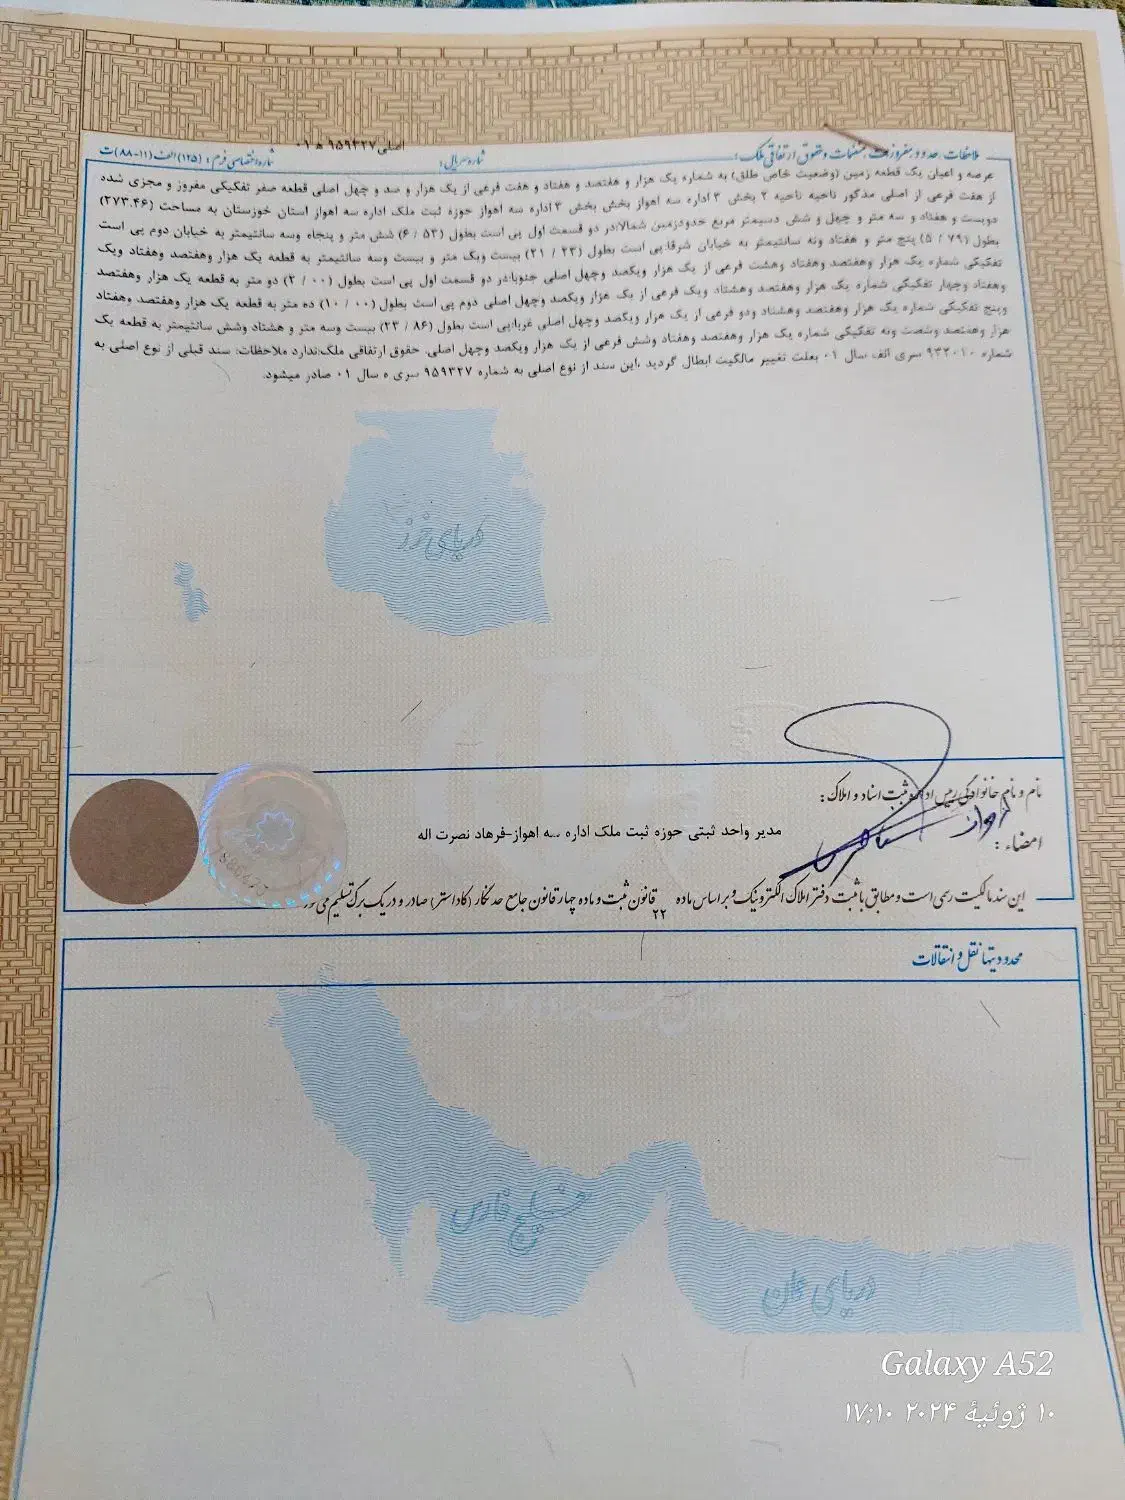 ملاحظات، حدود، مفروزات، مشخصات و حقوق ارتفاقی ملک:
شماره سریال:
اصلی ۹۵۹۳۲۷ ه ۰۱
شماره اختصاصی فرم: (۱۲۵) الف (۱۱-۸۸) ت
عرصه و اعیان یک قطعه زمین (وضعیت خاص طلق) به شماره یک هزار و هفتصد و هفتاد و هفت فرعی از یک هزار و صد و چهل اصلی قطعه صفر تفکیکی مفروز و مجزی شده
از هفت فرعی از اصلی مذکور ناحیه ناحیه ۲ بخش ۳ اداره سه اهواز بخش بخش ۳ اداره سه اهواز حوزه ثبت ملک اداره سه اهواز استان خوزستان به مساحت (۲۷۳.۴۶)
دویست و هفتاد و سه متر و چهل و شش دسیمتر مربع حدودزمین شمالا:در دو قسمت اول پی است بطول (۵۳ / ۶) شش متر و پنجاه وسه سانتیمتر به خیابان دوم پی است
بطول (۷۹ / ۵) پنج متر و هفتاد ونه سانتیمتر به خیابان شرقا:پی است بطول (۲۳ / ۲۱) بیست ویک متر و بیست وسه سانتیمتر به قطعه یک هزار وهفتصد وهفتاد ویک
تفکیکی شماره یک هزار وهفتصد وهفتاد وهشت فرعی از یک هزار ویکصد وچهل اصلی جنوبا:در دو قسمت اول پی است بطول (۰۰ / ۲) دو متر به قطعه یک هزار وهفتصد
وهفتاد وچهار تفکیکی شماره یک هزار وهفتصد وهشتاد ویک فرعی از یک هزار ویکصد وچهل اصلی دوم پی است بطول (۰۰ / ۱۰) ده متر به قطعه یک هزار وهفتصد وهفتاد
وپنج تفکیکی شماره یک هزار وهفتصد وهشتاد ودو فرعی از یک هزار ویکصد وچهل اصلی غربا:پی است بطول (۸۶ / ۲۳) بیست وسه متر و هشتاد وشش سانتیمتر به قطعه یک
هزار وهفتصد وشصت ونه تفکیکی شماره یک هزار وهفتصد وهفتاد وشش فرعی از یک هزار ویکصد وچهل اصلی. حقوق ارتفاقی ملک:ندارد ملاحظات: سند قبلی از نوع اصلی به
شماره ۹۳۲۰۱۰ سری الف سال ۰۱ بعلت تغییر مالکیت ابطال گردید ،این سند از نوع اصلی به شماره ۹۵۹۳۲۷ سری ه سال ۰۱ صادر میشود.
دریای خزر
نام و نام خانوادگی رئیس اداره ثبت اسناد و املاک:
مدیر واحد ثبتی حوزه ثبت ملک اداره سه اهواز-فرهاد نصرت اله
امضاء:
این سند مالکیت رسمی است و مطابق با ثبت دفتر املاک الکترونیک و بر اساس ماده ۲۲ قانون ثبت و ماده چهار قانون جامع حدنگار (کاداستر) صادر و در یک برگ تسلیم می‌شود
محدودیتها نقل و انتقالات
خلیج فارس
دریای عمان
Galaxy A52
۱۰ ژوئیهٔ ۲۰۲۴ ۱۷:۱۰